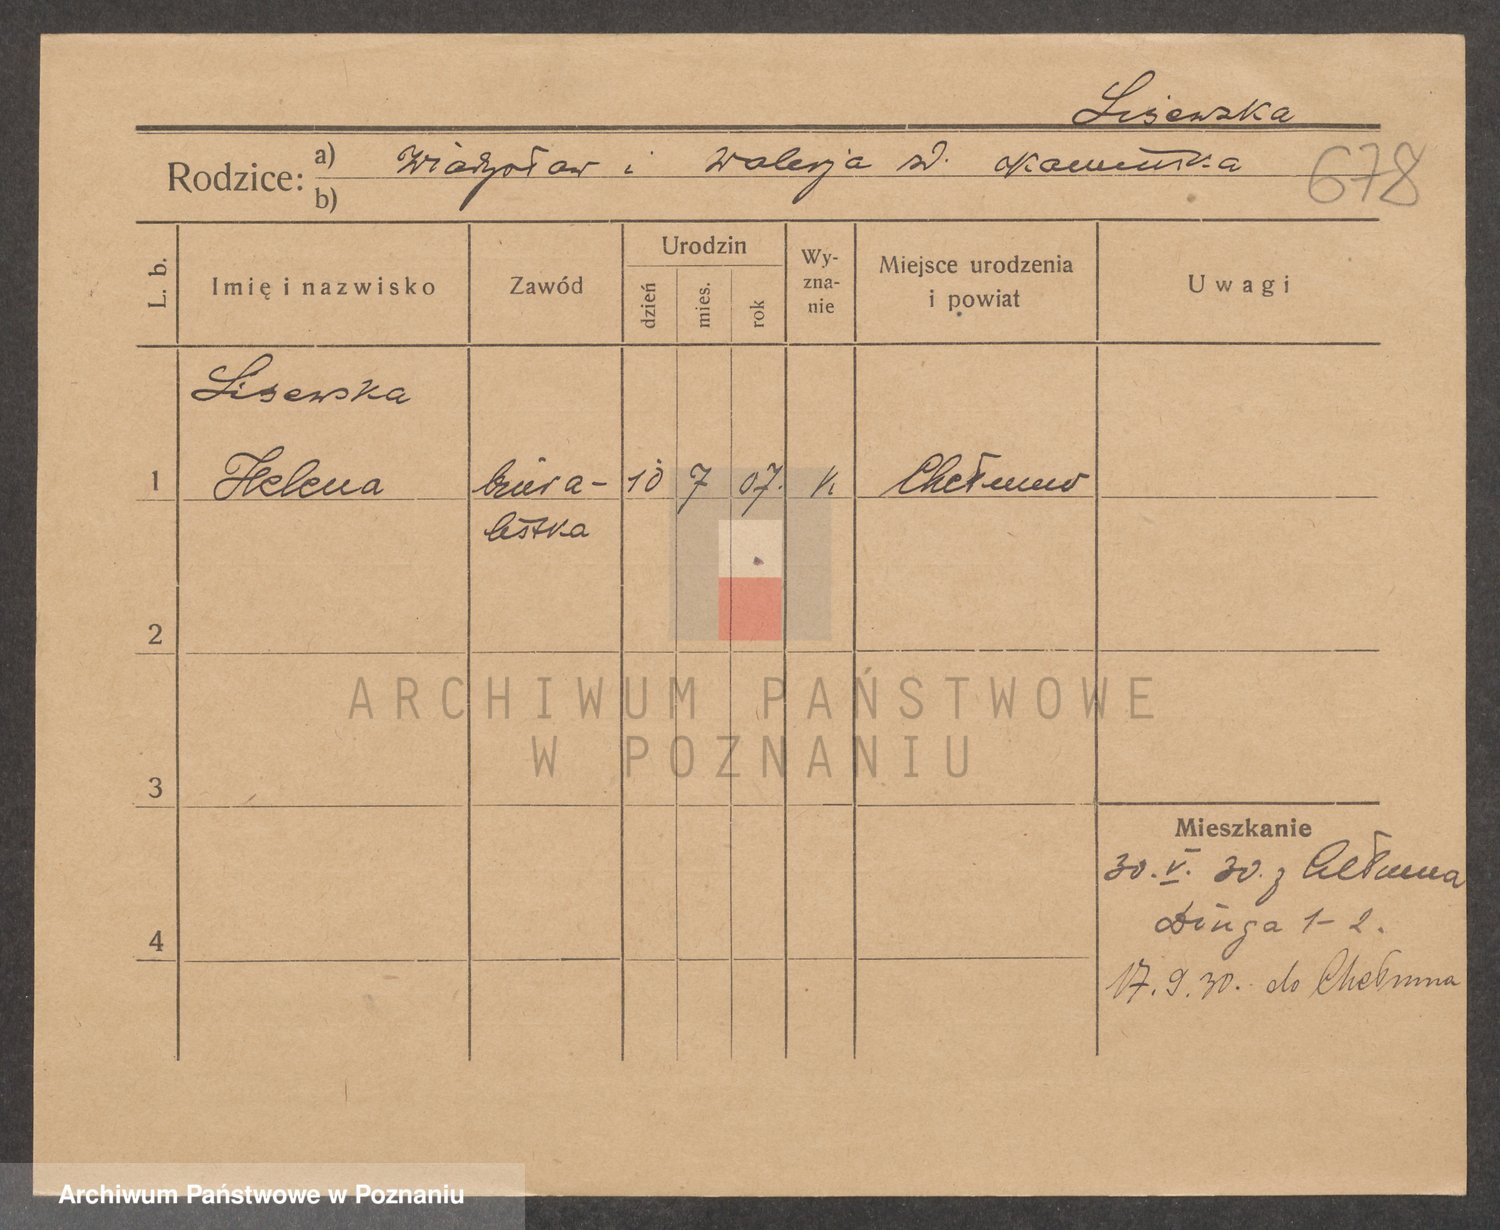 Lisewska
Rodzice: a) Władysław i Walerja w. Kamińska
b)
678
L. b.
Imię i nazwisko
Zawód
Urodzin
dzień
mies.
rok
Wy-
zna-
nie
Miejsce urodzenia
i powiat
Uwagi
Lisewska
1 Helena biura- 10 7 07. k Chełmno
listka
2
3
4
Mieszkanie
30. V. 30. z Chełmna
Długa 1-2.
17.9.30. do Chełmna
ARCHIWUM PAŃSTWOWE
W POZNANIU
Archiwum Państwowe w Poznaniu